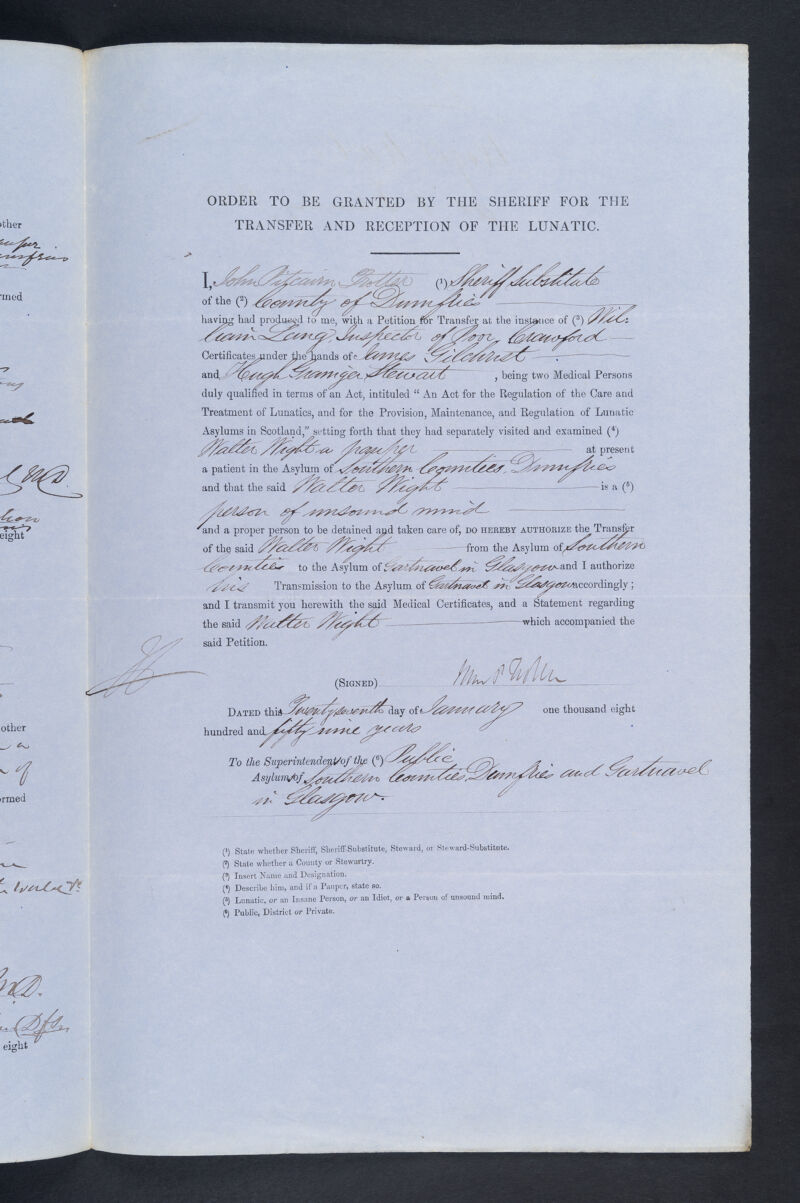 ORDER TO BE GRANTED BY THE SHERIFF FOR THE
TRANSFER AND RECEPTION OF THE LUNATIC.
I, John Pitcairn Trotter (1) Sheriff Substitute
of the (2) County of Dumfries
having had produced to me, with a Petition for Transfer at the instance of (3) Wil-
liam Lang, Inspector of Poor, Crawford
Certificates under the hands of James Gilchrist
and Hugh Grainger Stewart, being two Medical Persons
duly qualified in terms of an Act, intituled “ An Act for the Regulation of the Care and
Treatment of Lunatics, and for the Provision, Maintenance, and Regulation of Lunatic
Asylums in Scotland,” setting forth that they had separately visited and examined (4)
Walter Wight a pauper at present
a patient in the Asylum of Southern Counties, Dumfries
and that the said Walter Wight is a (5)
person of unsound mind
and a proper person to be detained and taken care of, DO HEREBY AUTHORIZE the Transfer
of the said Walter Wight from the Asylum of Southern
Counties to the Asylum of Gartnavel in Glasgow and I authorize
his Transmission to the Asylum of Gartnavel in Glasgow accordingly ;
and I transmit you herewith the said Medical Certificates, and a Statement regarding
the said Walter Wight which accompanied the
said Petition.
(SIGNED)
DATED this Twenty seventh day of January one thousand eight
hundred and fifty nine years
To the Superintendent of the (6) Public
Asylum of Southern Counties, Dumfries and Gartnavel
in Glasgow.
(1) State whether Sheriff, Sheriff-Substitute, Steward, or Steward-Substitute.
(2) State whether a County or Stewartry.
(3) Insert Name and Designation.
(4) Describe him, and if a Pauper, state so.
(5) Lunatic, or an Insane Person, or an Idiot, or a Person of unsound mind.
(6) Public, District or Private.
other
rmed
eight
other
of
ormed
M.D.
eight